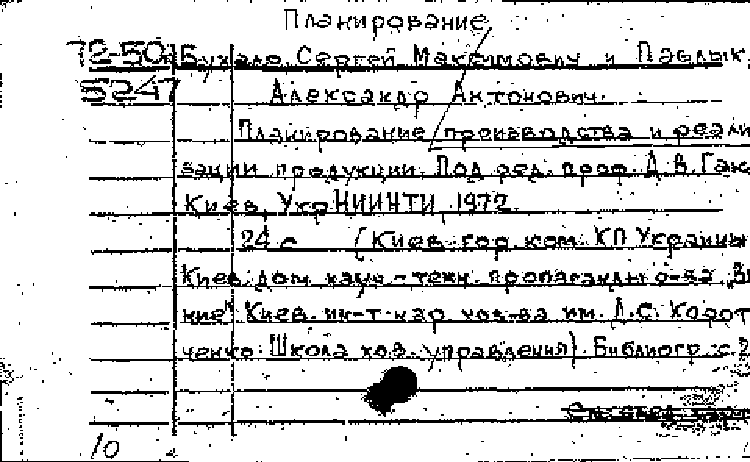 Планирование
72-50 Бухало Сергей Максимович и Павлык,
5247 Александр Антонович.
Планирование производства и реали
зации продукции. Под ред. проф. Д. В.
Киев, УкрНИИНТИ, 1972
24 с (Киев. гор. ком. КП Украины
Киев. дом науч.-техн. пропаганды о-ва "Зн
ние" Киев. ин-т нар хоз-ва им. Д. С. Корот
ченко. Школа хоз. управления). Библиогр.: с. 2
10